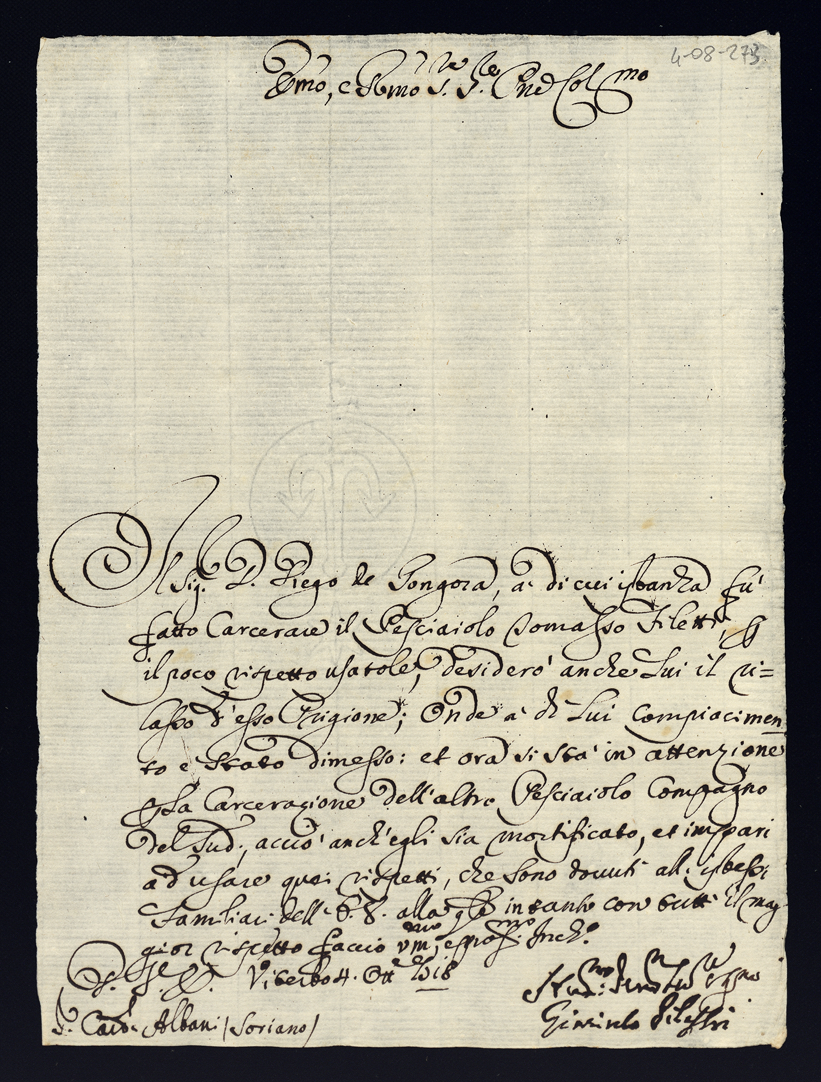 4-08-273
Emo, e Rmo Sre. Sre. Pne Col mo
Il Sig. D. Diego de Gongora, à di cui istanza fù
fatto Carcerare il Pesciaiolo Tomasso Filetti, p
il poco rispetto usatole, desiderò anche Lui il ri=
lasso d'esso Prigione; Onde à di Lui Compiacimen
to è stato dimesso: et ora si stà in attenzione
p la Carcerazione dell'altro Pesciaiolo Compagno
del Sud., acciò anch'egli sia mortificato, et impari
ad usare quei rispetti, che sono dovuti all' istessi
Familiari dell' E. V. alla qle intanto con tutto il mag
gior rispetto faccio um.ma, e profma. Inch.o
D. V. E. Viterbo 4. Ott.e 1718
S. Card.e Albani (Soriano)
Giacinto